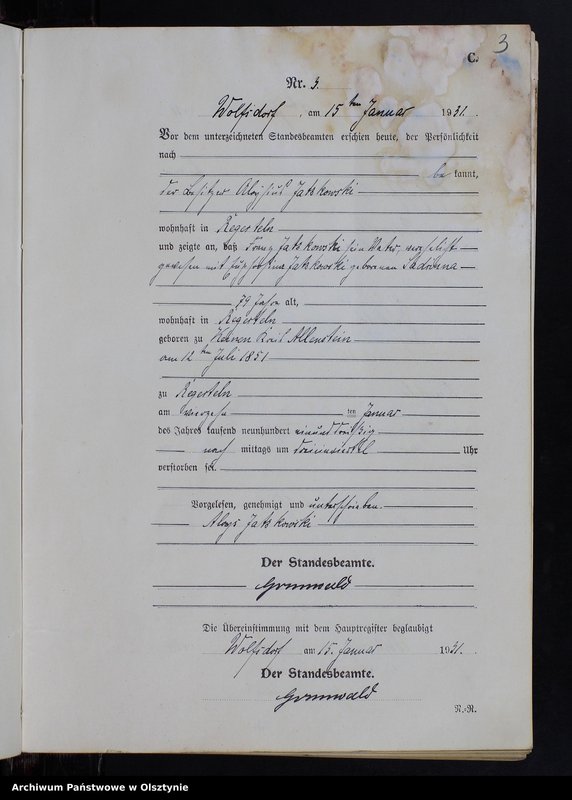 3
C.
Nr. 3.
Wolfsdorf, am 15ten Januar 1931.
Vor dem unterzeichneten Standesbeamten erschien heute, der Persönlichkeit
nach
be kannt,
der Besitzer Aloysius Jatzkowski
wohnhaft in Regerteln
und zeigte an, daß Franz Jatzkowski sein Vater, verehelicht
gewesen mit Euphrosina Jatzkowski geborenen
79 Jahre alt,
wohnhaft in Regerteln
geboren zu Kreis Allenstein
am 12ten Juli 1851
zu Regerteln
am vierzehn ten Januar
des Jahres tausend neunhundert einunddreißig
nach mittags um dreieinviertel Uhr
verstorben sei.
Vorgelesen, genehmigt und unterschrieben.
Aloys Jatzkowski
Der Standesbeamte.
Grunwald
Die Übereinstimmung mit dem Hauptregister beglaubigt
Wolfsdorf am 15. Januar 1931.
Der Standesbeamte.
Grunwald
N.-R.
Archiwum Państwowe w Olsztynie